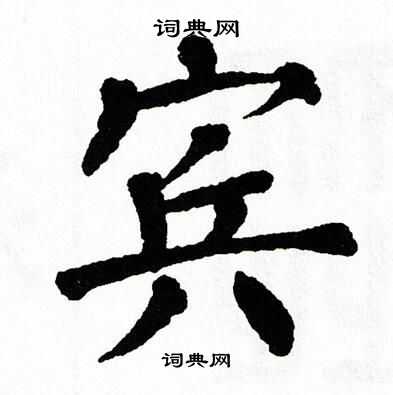 词典网
宾
词典网